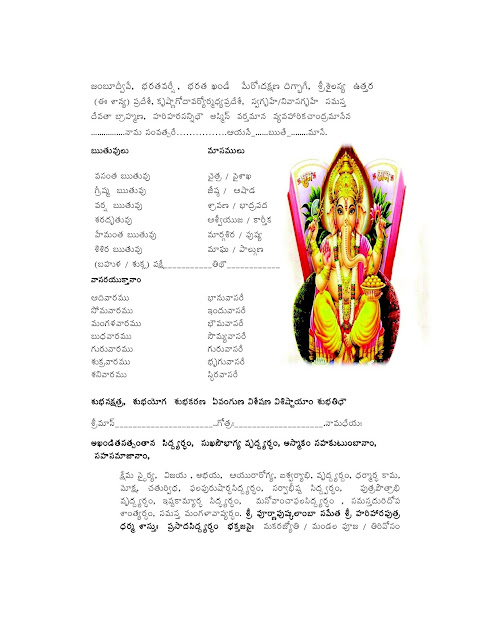 జంబూద్వీపే, భరతవర్షే , భరత ఖండే మేరోఃదక్షణ దిగ్భాగే, శ్రీశైలస్య ఉత్తర
(ఈ శాన్య) ప్రదేశే, కృష్ణాగోదావర్యోర్మధ్యప్రదేశే, స్వగృహే/నివాసగృహే సమస్త
దేవతా బ్రాహ్మణ, హరిహరసన్నిధౌ అస్మిన్ వర్తమాన వ్యవహారికచాంద్రమానేన
................నామ సంవత్సరే................ఆయనే_......ఋతే_........మాసే.
ఋతువులు మాసములు
వసంత ఋతువు చైత్ర / వైశాఖ
గ్రీష్మ ఋతువు జేష్ఠ / ఆషాడ
వర్ష ఋతువు శ్రావణ / భాద్రపద
శరదృతువు ఆశ్వీయుజ / కార్తీక
హేమంత ఋతువు మార్గశిర / పుష్య
శిశిర ఋతువు మాఘ / పాల్గుణ
(బహుళ / శుక్ల) పక్షే___________తిథౌ____________
వాసరయుక్తానాం
ఆదివారము భానువాసరే
సోమవారము ఇందువాసరే
మంగళవారము భౌమవాసరే
బుధవారము సౌమ్యవాసరే
గురువారము గురువాసరే
శుక్రవారము భృగువాసరే
శనివారము స్థిరవాసరే
శుభనక్షత్ర, శుభయోగ శుభకరణ ఏవంగుణ విశేషణ విశిష్టాయాం శుభతిథౌ
శ్రీమాన్______________________..గోత్రః____________________.నామధేయః
అఖండితసత్సంతాన సిద్ధ్యర్థం, సుఖసౌభాగ్య వృద్ధ్యర్థం, అస్మాకం సహకుటుంబానాం,
సహసమాజానాం,
క్షేమ స్థైర్య, విజయ , అభయ, ఆయురారోగ్య, ఐశ్వర్యాభి, వృద్ధ్యర్థం, ధర్మార్థ కామ,
మోక్ష, చతుర్విధ, ఫలపురుషార్థసిద్ధ్యర్థం, సర్వాభీష్ట సిద్ధ్యర్థం, పుత్రపౌత్రాభి
వృద్ధ్యర్థం, ఇష్టకామ్యార్థ సిద్ధ్యర్థం, మనోవాంచాఫలసిద్ధ్యర్థం , సమస్తదురితోప
శాంత్యర్థం, సమస్త మంగళావాప్త్యర్థం. శ్రీ పూర్ణాపుష్కలాంబా సమేత శ్రీ హరిహారపుత్ర
ధర్మ శాస్తుః ప్రసాదసిద్ధ్యర్థం భక్తజనైః మకరజ్యోతి / మండల పూజ / తిరివోనం